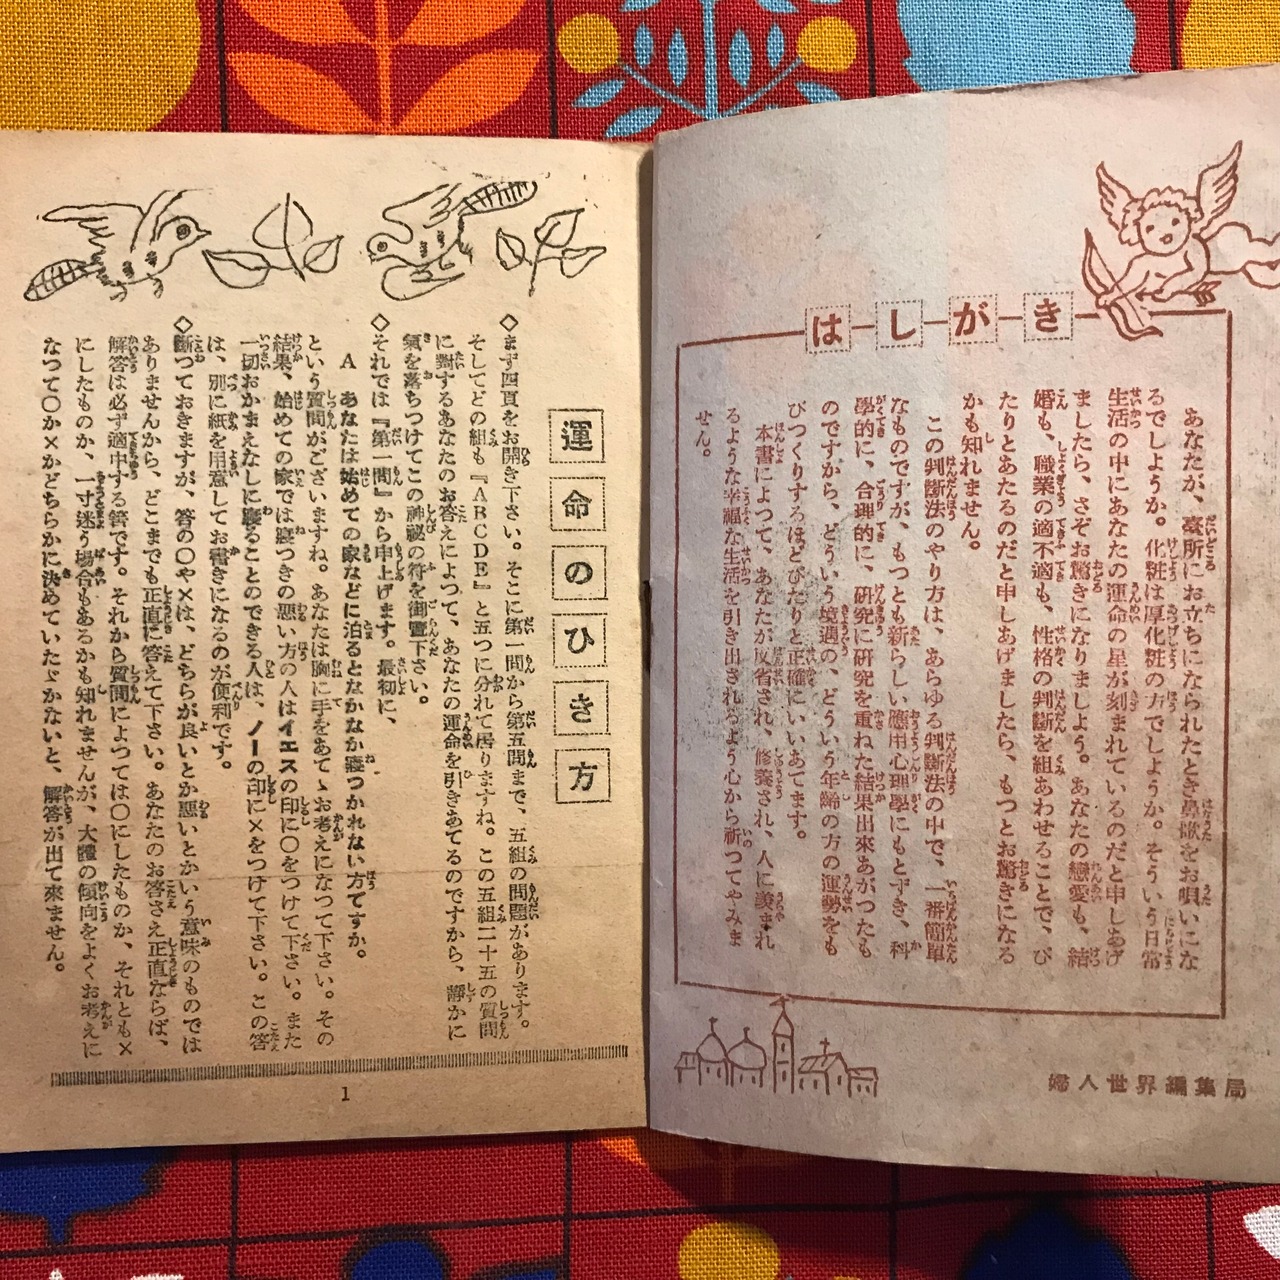 はしがき
あなたが、臺所にお立ちになられたとき鼻歌をお唄いにな
るでしようか。化粧は厚化粧の方でしようか。そういう日常
生活の中にあなたの運命の星が刻まれているのだと申しあげ
ましたら、さぞお驚きになりましよう。あなたの戀愛も、結
婚も、職業の適不適も、性格の判斷を組あわせることで、ぴ
たりとあたるのだと申しあげましたら、もつとお驚きになる
かも知れません。
この判斷法のやり方は、あらゆる判斷法の中で、一番簡單
なものですが、もつとも新らしい應用心理學にもとずき、科
學的に、合理的に、研究に研究を重ねた結果出來あがつたも
のですから、どういう境遇の、どういう年齡の方の運勢をも
びつくりするほどぴたりと正確にいいあてます。
本書によつて、あなたが反省され、修養され、人に羨まれ
るような幸福な生活を引き出されるよう心から祈つてやみま
せん。
婦人世界編集局
運命のひき方
◇まず四頁をお開き下さい。そこに第一問から第五問まで、五組の問題があります。
そしてどの組も『ABCDE』と五つに分れて居りますね。この五組二十五の質問
に對するあなたのお答えによつて、あなたの運命を引きあてるのですから、靜かに
氣を落ちつけてこの神祕の符を御覽下さい。
◇それでは『第一問』から申上げます。最初に、
A あなたは始めての家などに泊るとなかなか寢つかれない方ですか。
という質問がございますね。あなたは胸に手をあてゝお考えになつて下さい。その
結果、始めての家では寢つきの惡い方の人はイエスの印に○をつけて下さい。また
一切おかまえなしに寢ることのできる人は、ノーの印に×をつけて下さい。この答
は、別に紙を用意してお書きになるのが便利です。
◇斷つておきますが、答の○や×は、どちらが良いとか惡いとかいう意味のものでは
ありませんから、どこまでも正直に答えて下さい。あなたのお答さえ正直ならば、
解答は必ず適中する筈です。それから質問によつては○にしたものか、それとも×
にしたものか、一寸迷う場合もあるかも知れませんが、大體の傾向をよくお考えに
なつて○か×かどちらかに決めていたゞかないと、解答が出て來ません。
1